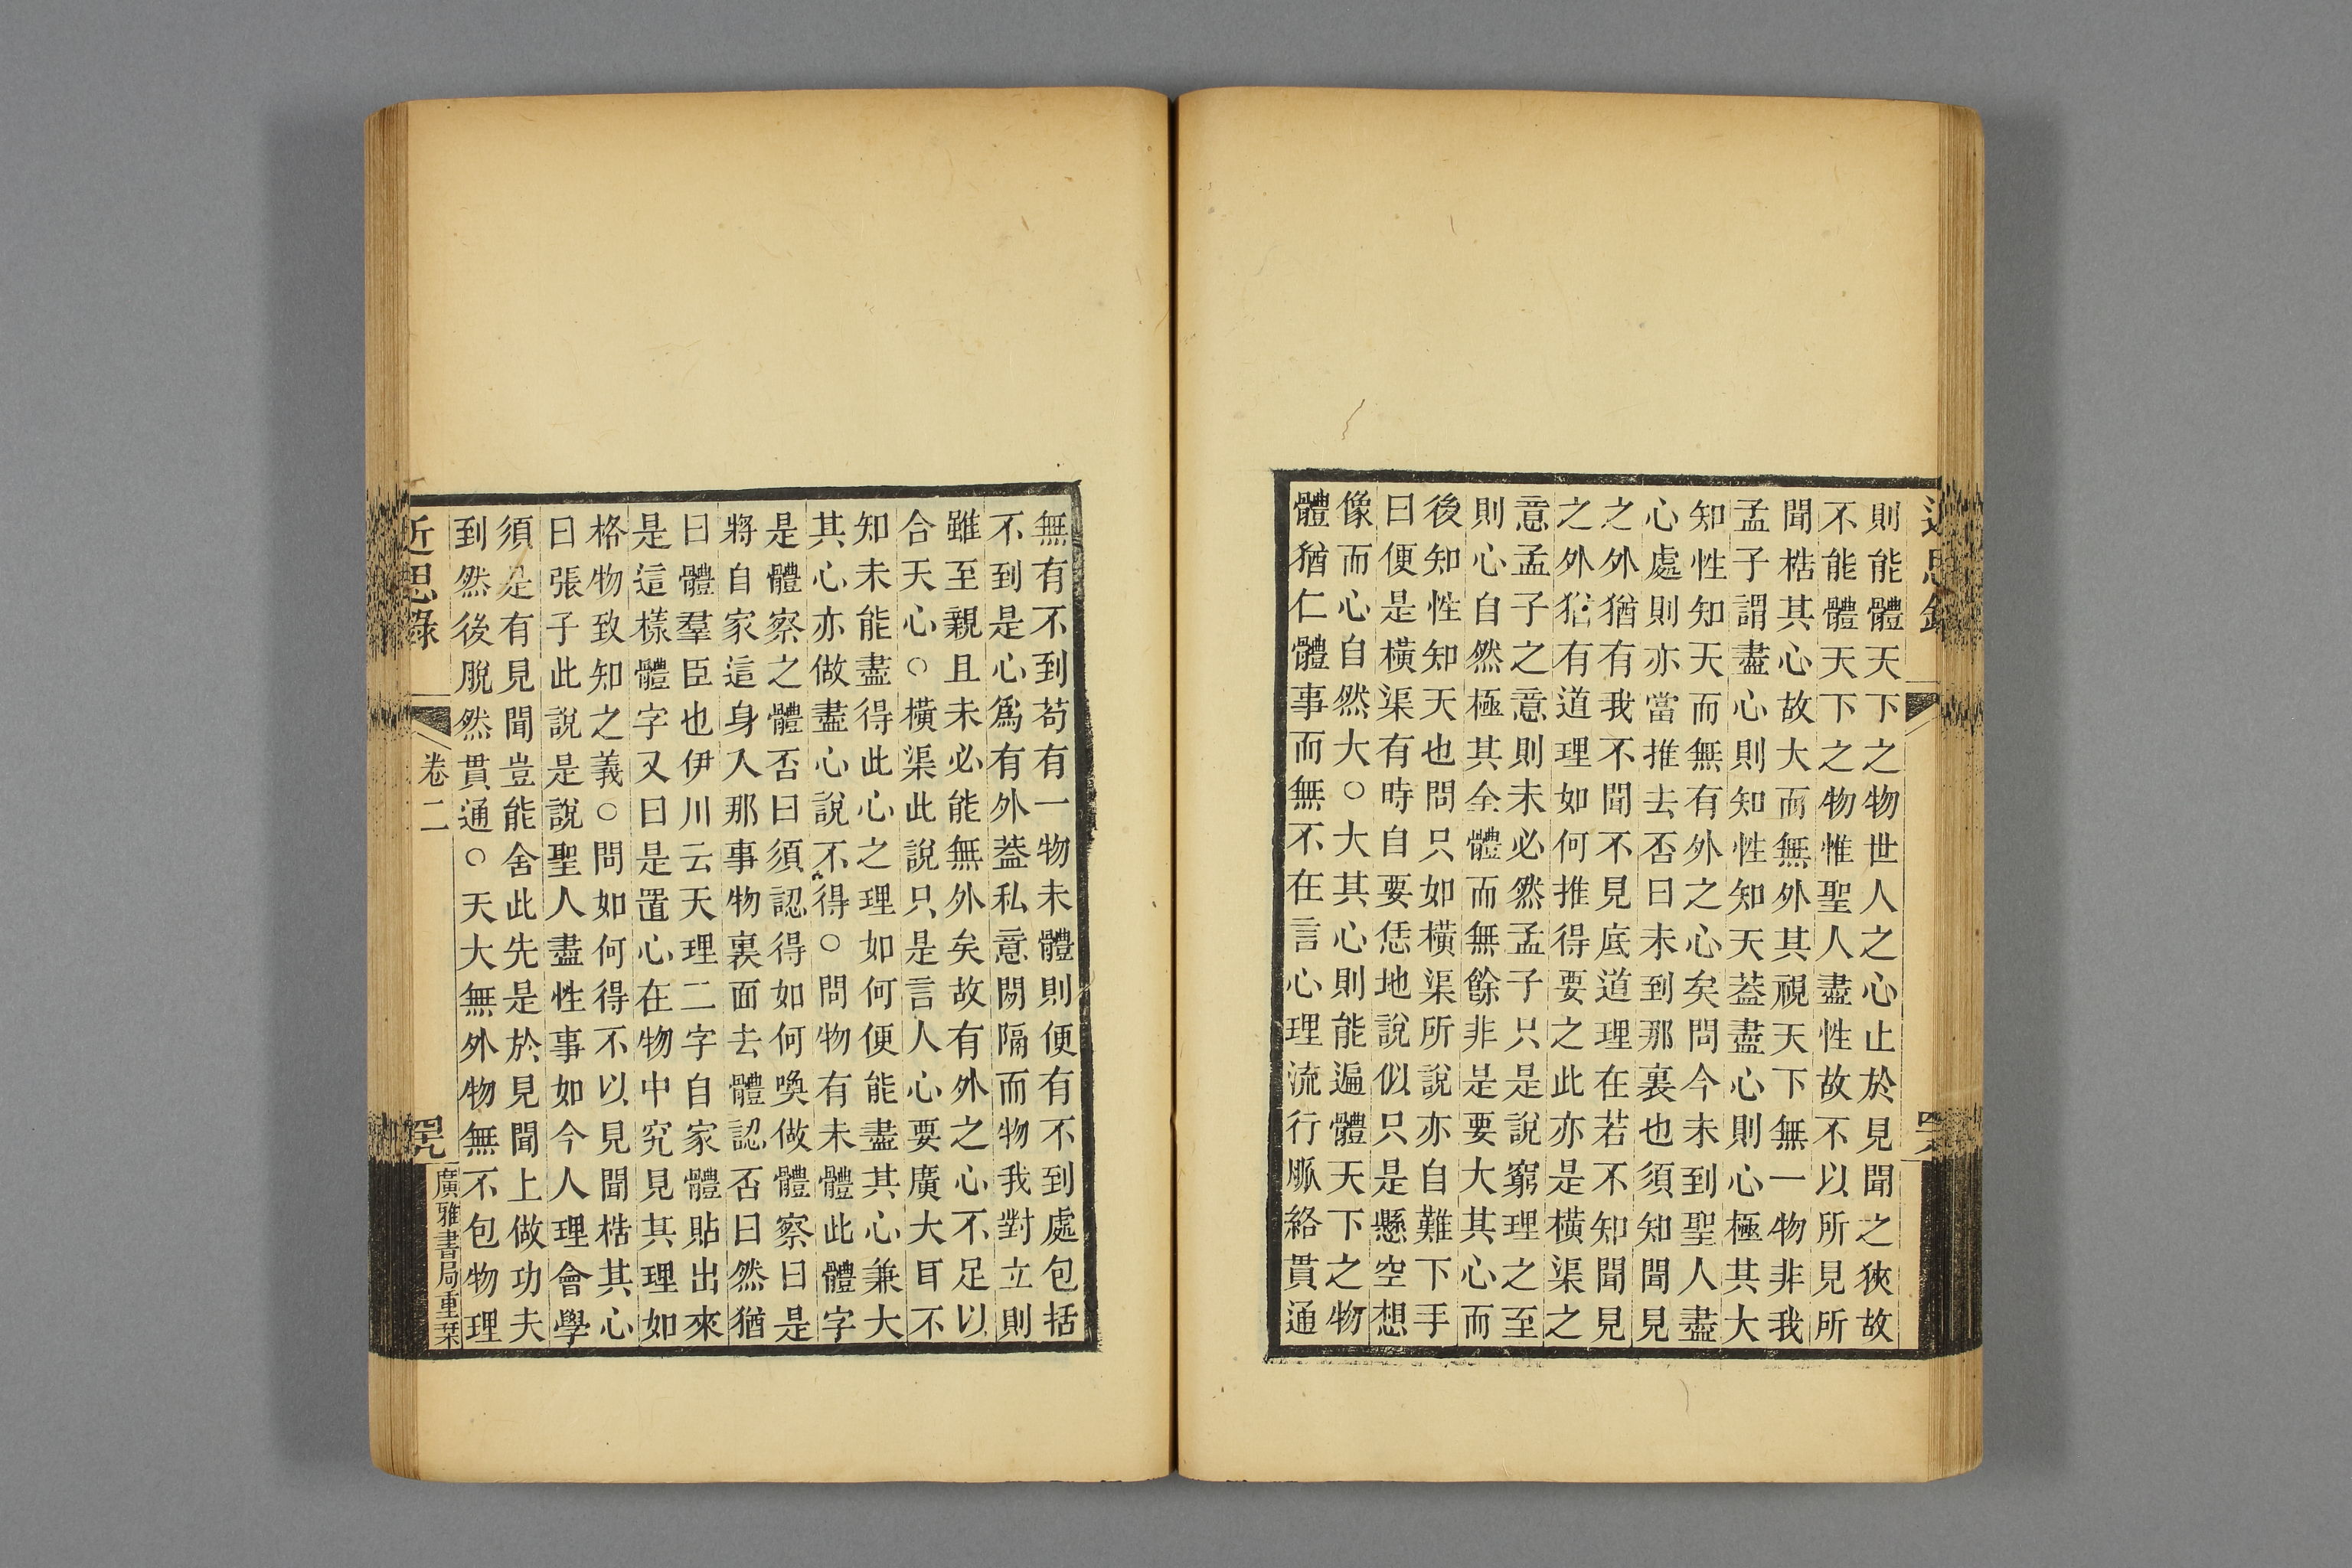 則能體天下之物世人之心止於見聞之狹故
不能體天下之物惟聖人盡性故不以所見所
聞梏其心故大而無外其視天下無一物非我
孟子謂盡心則知性知天葢盡心則心極其大
知性知天而無有外之心矣問今未到聖人盡
心處則亦當推去否曰未到那裏也須知聞見
之外猶有我不聞不見底道理在若不知聞見
之外猶有道理如何推得要之此亦是橫渠之
意孟子之意則未必然孟子只是說窮理之至
則心自然極其全體而無餘非是要大其心而
後知性知天也問只如橫渠所說亦自難下手
曰便是橫渠有時自要恁地說似只是懸空想
像而心自然大○大其心則能遍體天下之物
體猶仁體事而無不在言心理流行脈絡貫通
無有不到茍有一物未體則便有不到處包括
不到是心爲有外葢私意閒隔而物我對立則
雖至親且未必能無外矣故有外之心不足以
合天心○橫渠此說只是言人心要廣大耳不
知未能盡得此心之理如何便能盡其心兼大
其心亦做盡心說不得○問物有未體此體字
是體察之體否曰須認得如何喚做體察曰是
將自家這身入那事物裏面去體認否曰然猶
曰體羣臣也伊川云天理二字自家體貼出來
是這樣體字又曰是置心在物中究見其理如
格物致知之義○問如何得不以見聞梏其心
曰張子此說是說聖人盡性事如今人理會學
須是有見聞豈能舍此先是於見聞上做功夫
到然後脫然貫通○天大無外物無不包物理
近思錄
卷二
廣雅書局重栞